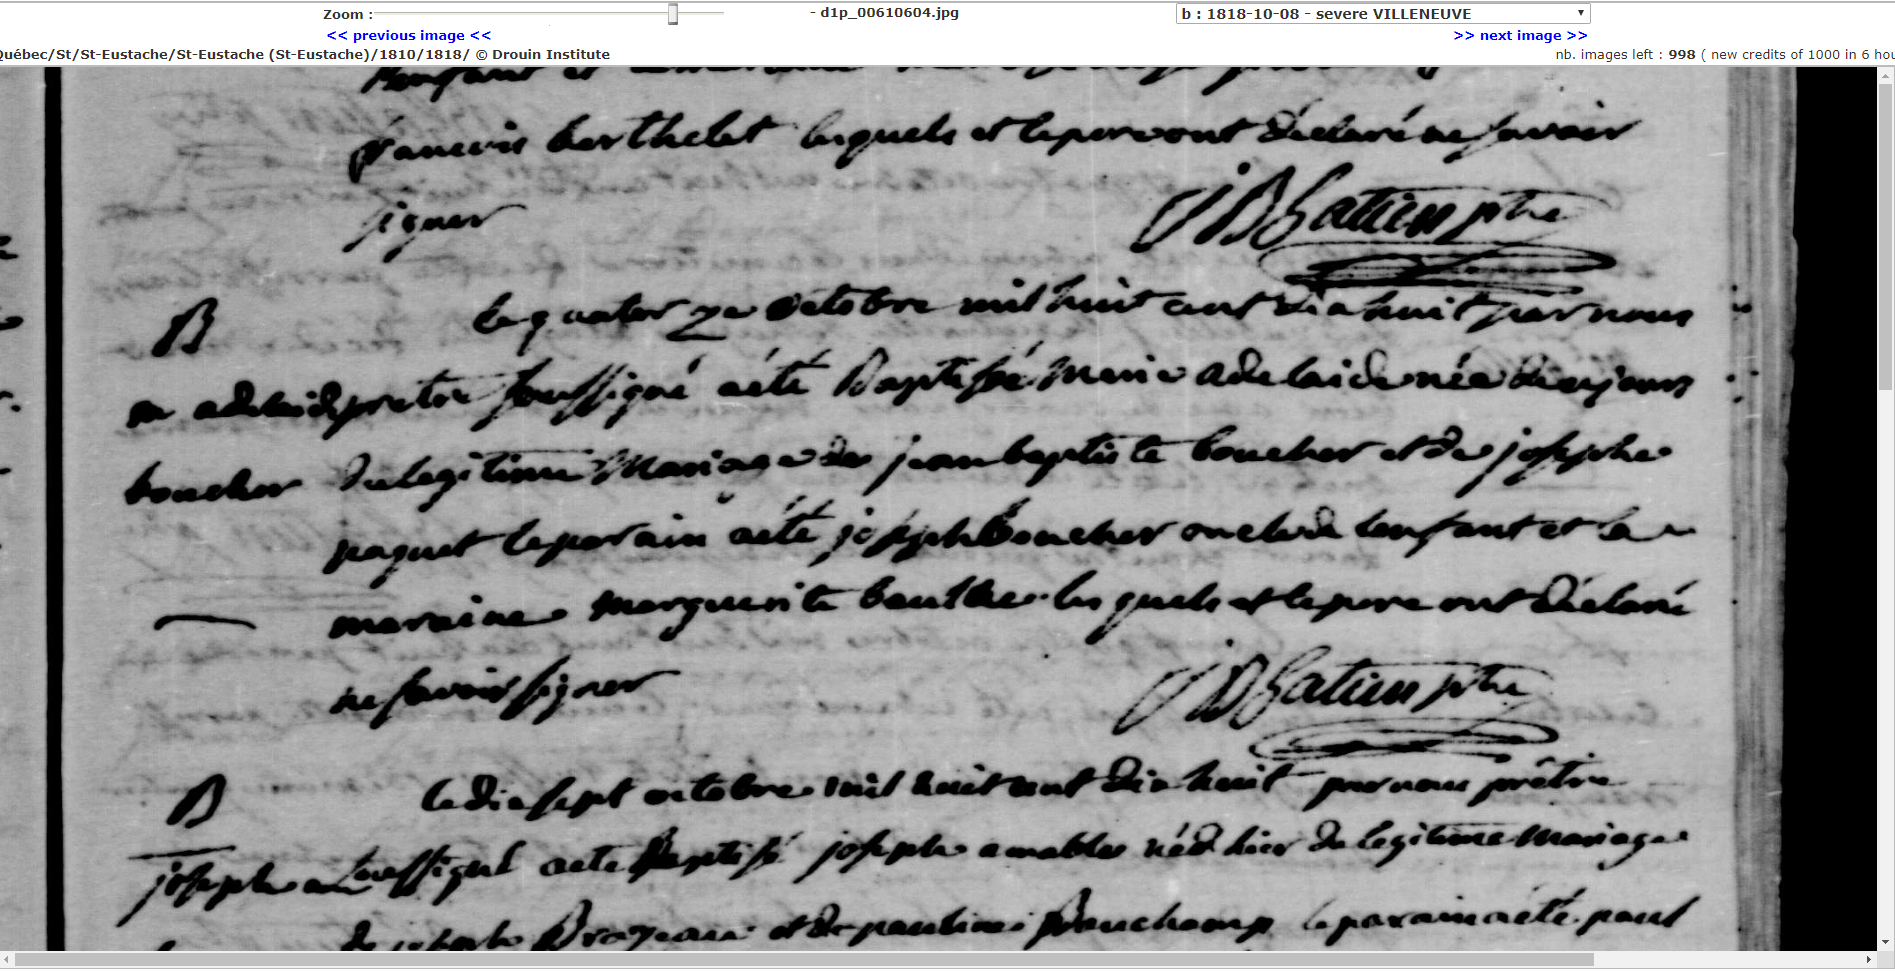 Zoom :
- d1p_00610604.jpg
b : 1818-10-08 - severe VILLENEUVE
<< previous image <<
>> next image >>
Québec/St/St-Eustache/St-Eustache (St-Eustache)/1810/1818/ © Drouin Institute
nb. images left : 998 ( new credits of 1000 in 6 hou
lenfant et
francois berthelet lesquels et le pere ont déclaré ne savoir
signer
JB Gatien ptre
B
le quatorze octobre mil huit cent dix huit par nous
m adelaide
pretre soussigné a été Baptisée Marie Adelaide née
boucher
du legitime Mariage de jean baptiste boucher et de josephe
paquet le parain a été joseph Boucher oncle de lenfant et la
maraine Marguerite lesquels et le pere ont déclaré
ne savoir signer
JB Gatien ptre
B
le dix sept octobre mil huit cent dix huit par nous prêtre
joseph am
soussigné a été Baptisé joseph amable né d'hier du legitime Mariage
de joseph Brazeau et de pauline Beauchamp le parain a été paul